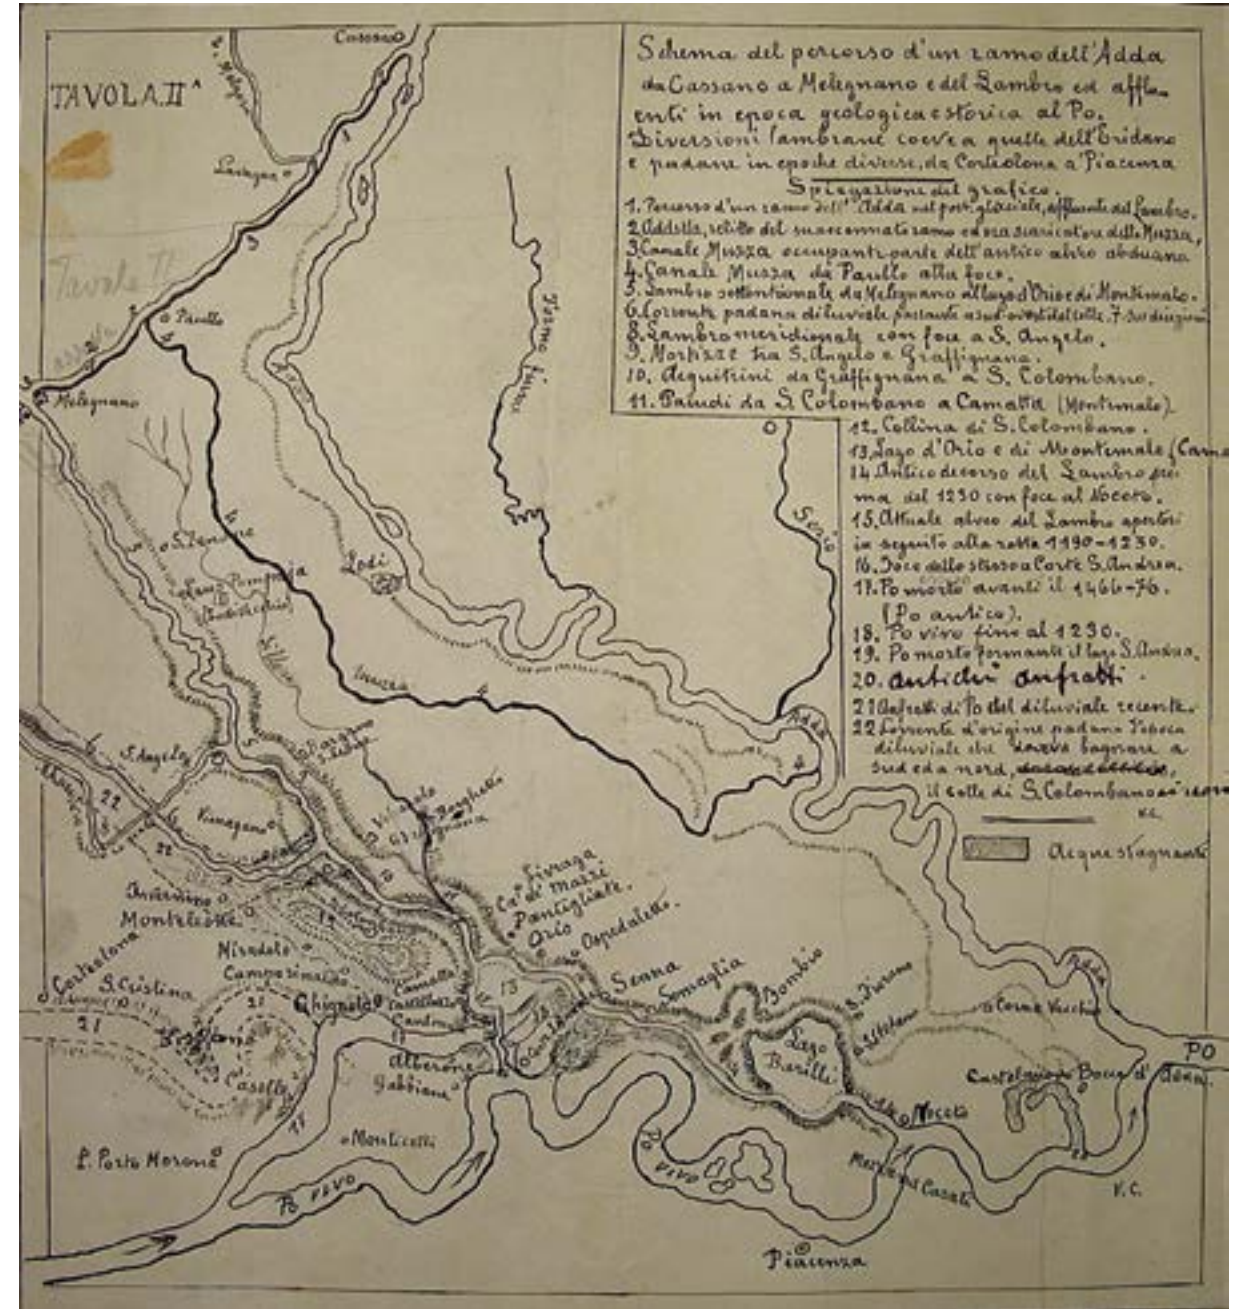 TAVOLA.IIᴬ
Tavola II
Schema del percorso d'un ramo dell'Adda
da Cassano a Melegnano e del Lambro ed afflu-
enti in epoca geologica e storica al Po.
Diversioni lambrane coeve a quelle dell'Eridano
e padane in epoche diverse, da Corteolona a Piacenza
Spiegazione del grafico.
1. Percorso d'un ramo dell'Adda nel post-glaciale, affluente del Lambro.
2 Addetta, relitto del suaccennato ramo ed ora scaricatore della Muzza,
3. Canale Muzza occupante parte dell'antico alveo abduano
4. Canale Muzza da Paullo alla foce.
5. Lambro settentrionale da Melegnano al lago d'Orio e di Montemalo.
6. Corrente padana diluviale passante a sud-ovest del colle. 7. Sue direzioni
8. Lambro meridionale con foce a S. Angelo.
9. Mortizze tra S. Angelo e Graffignana.
10. Acquitrini da Graffignana a S. Colombano.
11. Paludi da S. Colombano a Camatta (Montemalo)
12. Collina di S. Colombano.
13. Lago d'Orio e di Montemalo (Cama
14. Antico decorso del Lambro pri-
ma del 1230 con foce al Noceto.
15. Attuale alveo del Lambro apertosi
in seguito alla rotta 1190-1230.
16. Foce dello stesso a Corte S. Andrea.
17. Po morto avanti il 1466-76.
(Po antico).
18. Po vivo fino al 1230.
19. Po morto formante il lago S. Andrea.
20. Antichi anfratti.
21 Anfratti di Po del diluviale recente.
22 Corrente d'origine padana d'epoca
diluviale che doveva bagnare a
sud ed a nord,
il colle di S. Colombano
Acque stagnanti
Cassano
Lavagna
Paullo
Melegnano
Adda
Serio
S. Zenone
Lodi
Sillero
Muzza
Adda
S. Angelo
Vimagano
Borghetto
Livraga
Ca' de' Mazzi
Pantigliate.
Orio
Ospedaletto.
Invernino
Monteleone
Miradolo
Camporinaldo
Corteolona
S. Cristina
Chignolo
Camatta
Alberone
Gabbiana
Caselle
Senna
Somaglia
Bombio
S. Fiorano
Lago
Barilli
Corno Vecchio
Adda
PO
Castelnuovo Bocca d'
Adda.
Noceto
Monticelli
P. Porto Morone
Po vivo
Po vivo
Mezzano Casati
V. C.
Piacenza